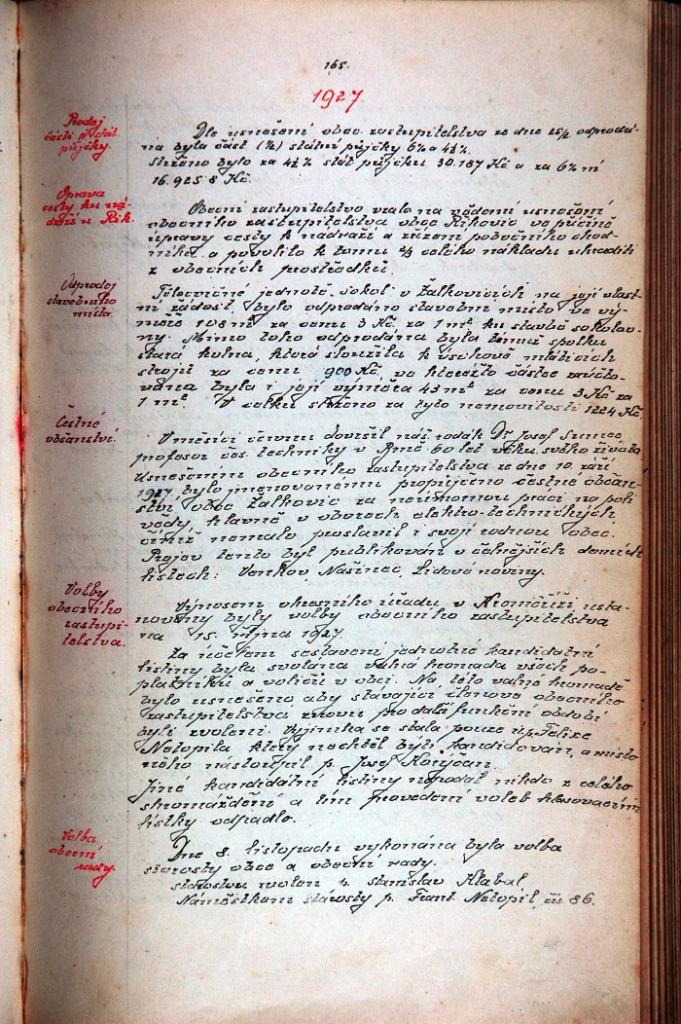 165.
1927.
Prodej
části stát.
půjčky.
Dle usnesení obec. zastupitelstva ze dne 25/2 odprodá-
na byla část (½) státní půjčky 6% a 4½%.
Strženo bylo za 4½% stát půjčku 30.187 Kč a za 6%ní
16.925.8 Kč.
Oprava
cesty ku ná-
draží u Řík.
Obecní zastupitelstvo vzalo na vědomí usnesení
obecního zastupitelstva obce Říkovic ve příčině
úpravy cesty k nádraží a zřízení pobočního chod-
níku a povolilo k tomu ⅔ celého nákladu uhraditi
z obecních prostředků.
Odprodej
stavebního
místa.
Tělocvičné jednotě „Sokol" v Žalkovicích na její vlast-
ní žádost, bylo odprodáno stavební místo ve vý-
měře 108 m² za cenu 3 Kč. za 1 m² ku stavbě sokolov-
ny. Mimo toho odprodána byla témuž spolku
stará kolna, která sloužila k úschově mláticích
strojů za cenu 900 Kč, ve kteréžto částce zaúčto-
vána byla i její výměra 43 m² za cenu 3 Kč za
1 m². V celku strženo za tyto nemovitosti 1224 Kč.
Čestné
občanství.
V měsíci červnu dovršil náš rodák Dr. Josef Sumec,
profesor čes. techniky v Brně 60 let věku svého života.
Usnesením obecního zastupitelstva ze dne 10. září
1927, bylo jmenovanému propůjčeno čestné občan-
ství obce Žalkovic za neúnavnou práci na poli
vědy, hlavně v oborech elektro-technických,
čímž nemálo proslavil i svoji rodnou obec.
Projev tento byl publikován v čelnějších denních
listech: Venkov, Našinec, Lidové noviny.
Volby
obecního
zastupi-
telstva.
Výnosem okresního úřadu v Kroměříži usta-
noveny byly volby obecního zastupitelstva
na 15. října 1927.
Za účelem sestavení jednotné kandidátní
listiny byla svolána valná hromada všech po-
platníků a voličů v obci. Na této valné hromadě
bylo usneseno, aby stávající členové obecního
zastupitelstva znovu pro další funkční období
byli zvoleni. Vyjímka se stala pouze u p. Felixe
Netopila, který nechtěl býti kandidován, a místo
něho nastoupil p. Josef
Jiné kandidátní listiny nepodal nikdo z celého
shromáždění a tím provedení voleb hlasovacími
lístky odpadlo.
Volba
obecní
rady.
Dne 8. listopadu vykonána byla volba
starosty obce a obecní rady.
Starostou zvolen p. Stanislav Hlabal
Náměstkem starosty p. Frant. Netopil, čís 86.